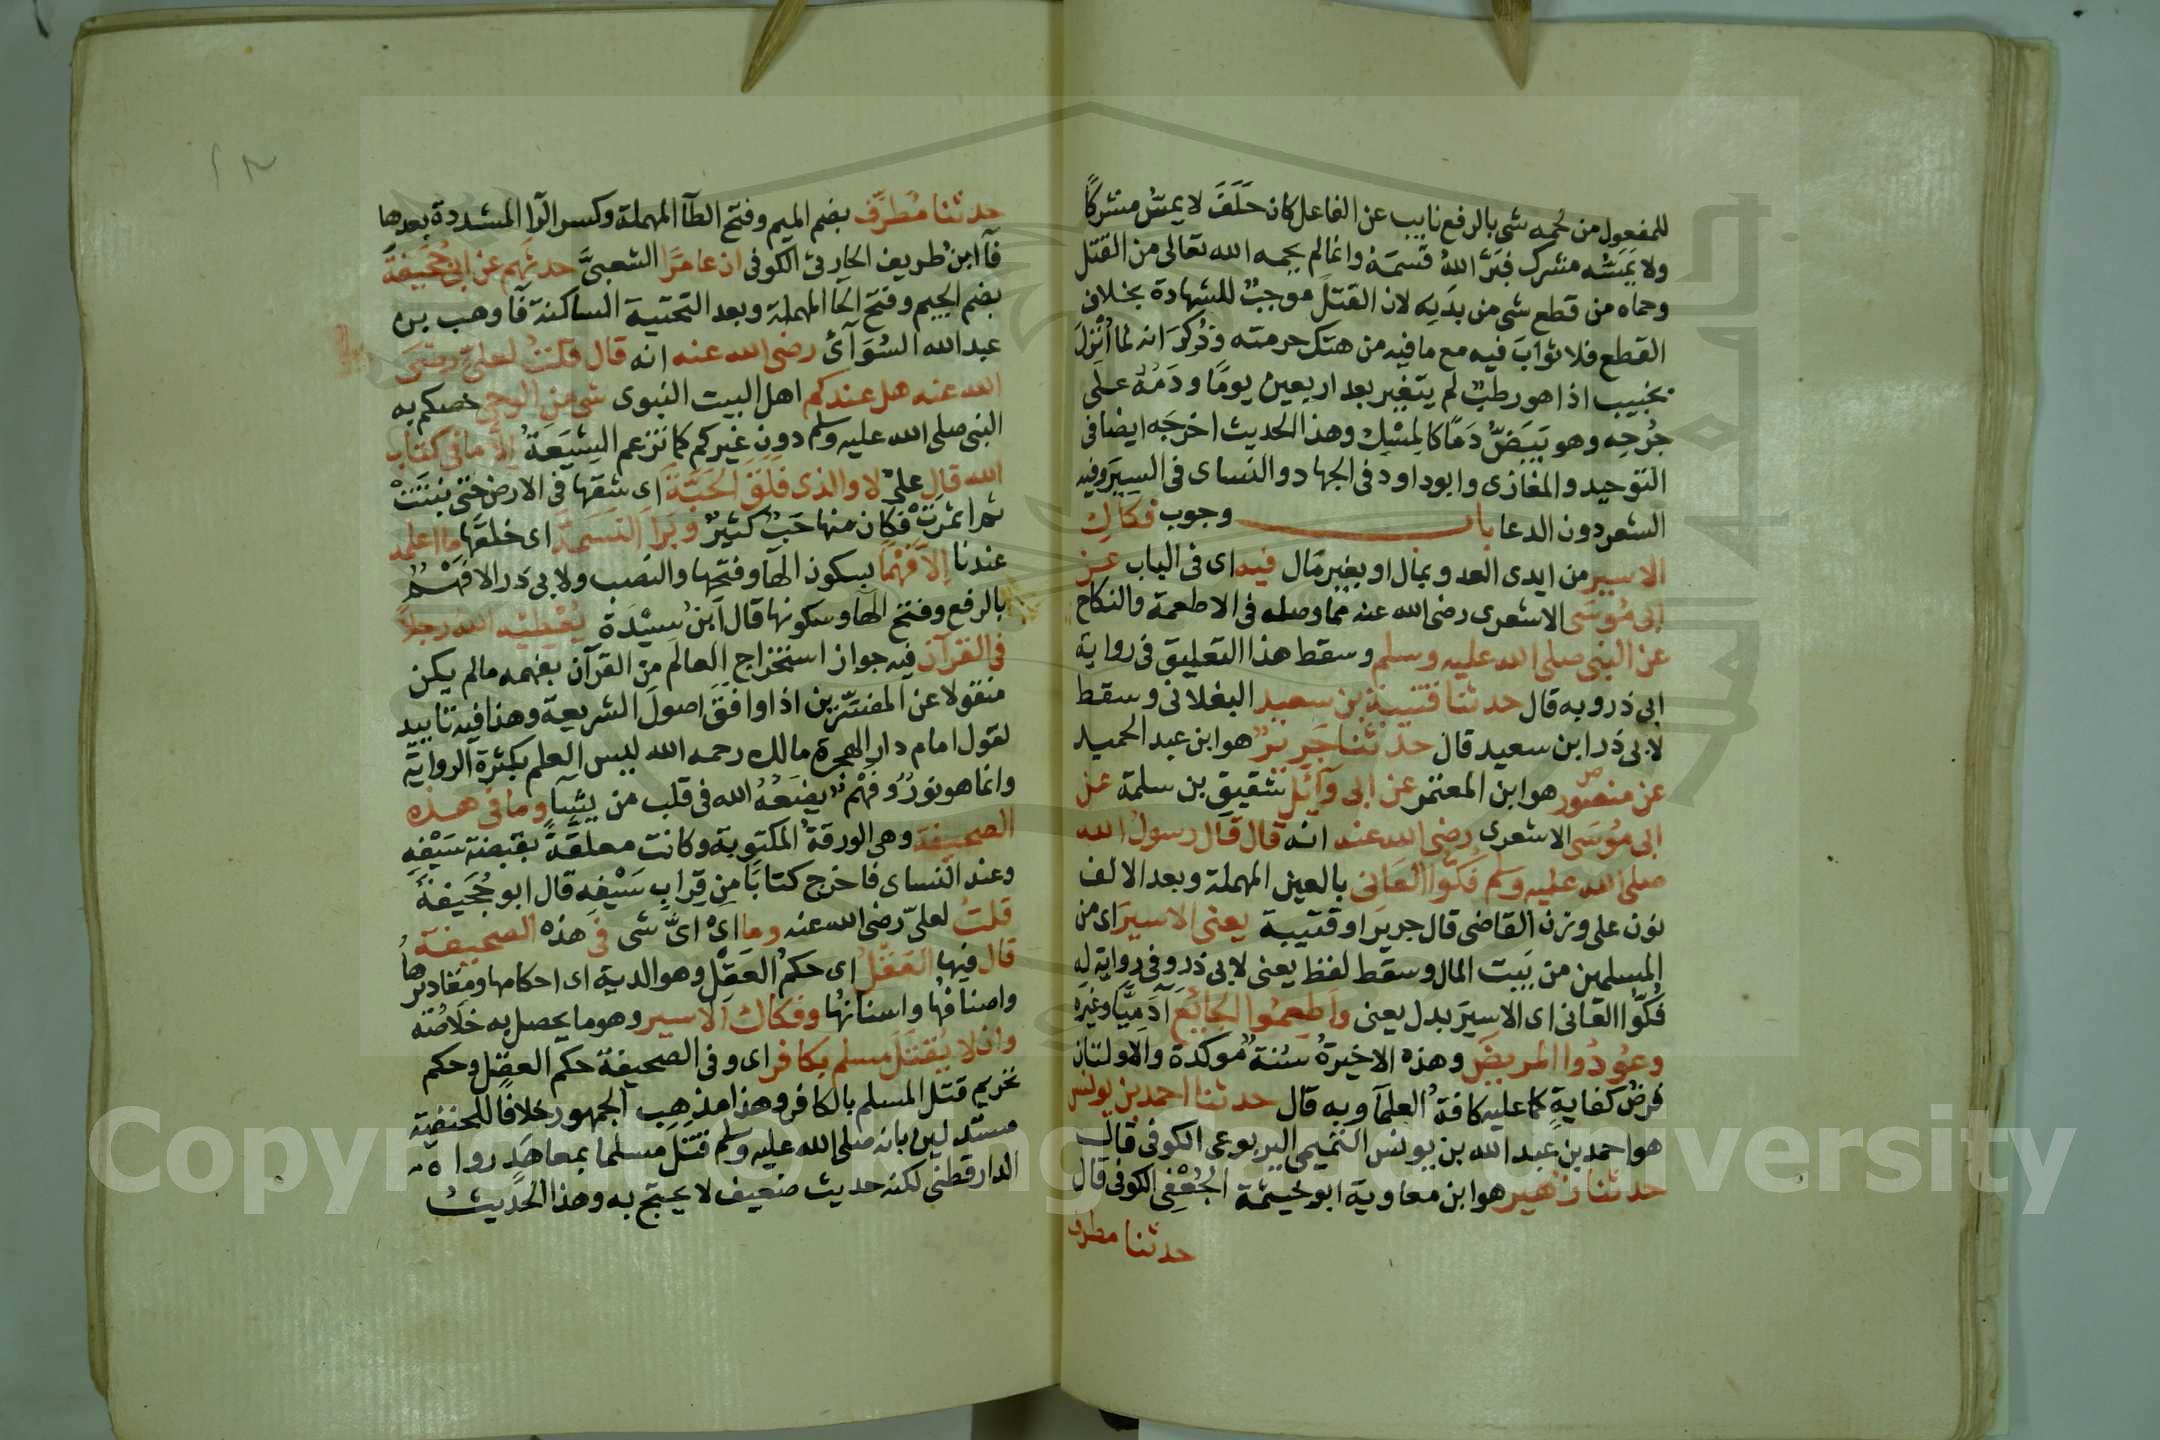 للمفعول من لحمه شي بالرفع نايب عن الفاعل كان حَلَفَ لا يمسّ مشركًا
ولا يَمَسّه مشرك فبَرَّ اللهُ قسَمَهُ وانما لم يحمه الله تعالى من القتل
وحماه من قطع شي من بدنه لان القتل موجبٌ للشهادة بخلاف
القطع فلا ثوابَ فيه مع ما فيه من هتك حرمته وذُكرَ انه لما اُنْزِلَ
خبيب اذا هو رطبٌ لم يتغير بعد اربعين يومًا ودَمُهُ على
جُرحِه وهو يَبِضُّ دَمًا كالمِسْكِ وهذا الحديث اخرجَه ايضا في
التوحيد والمغازى وابوداود في الجهاد والنساى في السِيَر وفيه
الشعر دون الدعا باب وجوب فكاك
الاسير من ايدى العدو بمال او بغير مال فيه اى في الباب عن
ابى مُوسَى الاشعرى رضى الله عنه مما وصله في الاطعمة والنكاح
عن النبى صلى الله عليه وسلم وسقط هذا التعليق في رواية
ابى ذر وبه قال حدثنا قتيبة بن سعيد البغلانى وسقط
لابى ذر ابن سعيد قال حدثنا جَريرٌ هو ابن عبد الحميد
عن منصور هو ابن المعتمر عن ابى وآئل شقيق بن سلمة عن
ابى مُوسَى الاشعرى رضى الله عنه انه قال قال رسولُ الله
صلى الله عليه وسلم فكّوا العَانى بالعين المهملة وبعد الالف
نون على وزن القاضى قال جرير او قتيبة يعنى الاسير اى من
المسلمين من بيت المال وسقط لفظ يعنى لابى ذر وفى رواية له
فُكّوا العَانى اى الاسيرَ بدل يعنى وأطعِمُوا الجائعَ آدَمِيًّا وغيره
وعُودُوا المريضَ وهذه الاخيرةُ سُنةٌ موكدة والاولتان
فرضُ كفايةٍ كما عليه كافةُ العلمآ وبه قال حدثنا احمد بن يونس
هو احمد بن عبد الله بن يونس التميمى اليربوعى الكوفى قال
حدثنا زهير هو ابن معاوية ابو خيثمة الجُعْفِى الكوفى قال
حدثنا مطرف
حدثنا مُطرِّف بضم الميم وفتح الطآ المهملة وكسر الرا المشددة بعدها
فآ ابنُ طريف الحارثى الكوفى ان عامرًا الشعبىَّ حدثهم عن ابى جُحَيفة
بضم الجيم وفتح الحآ المهملة وبعد التحتية الساكنة فآ وهب بن
عبد الله السُوَآئ رضى الله عنه انه قال قلتُ لعلىّ رضى
الله عنه هل عندكم اهل البيت النبوى شى من الوحى خصكم به
النبى صلى الله عليه وسلم دون غيركم كما تزعم الشِيعَةُ إلاّ ما في كتاب
الله قال علىٌ لا والذى فلقَ الحَبَّةَ اى شقها في الارض حتى نبتَتْ
ثم اثمرتْ فكان منها حَبٌ كثيرٌ وبرأ النسَمَةَ اى خلقها ما اعلمه
عندنا إلاّ فَهْمًا بسكون الهآ وفتحها والنصب ولابى ذر الا فهمٌ
بالرفع وفتح الهآ وسكونها قال ابن سِيْدَة يُعْطيه الله رجلاً
في القرآن فيه جواز استخراج العالم من القرآن بفهمه مالم يكن
منقولا عن المفسّرين اذا وافقَ اصولَ الشريعة وهذا فيه تاييد
لقول امام دار الهجرة مالك رحمه الله ليس العلم بكثرة الرواية
وانما هو نورٌ وفَهْمٌ يضَعُهُ الله في قلب من يشآ وما في هذه
الصحيفة وهى الورقةُ المكتوبة وكانت معلقةً بقبضة سَيْفِهِ
وعند النساى فاخرج كتابًا من قِرابِ سَيْفِه قال ابو جُحَيفة
قلتُ لعلىّ رضى الله عنه وما اىْ اىُّ شى في هذه الصحيفة
قال فيها العَقْلُ اى حكمُ العَقل وهو الدية اى احكامها ومقاديرها
واصنافها واسنانها وفكاك الاسير وهو ما يحصل به خلاصُهُ
وان لا يُقتَلَ مسلم بكافر اى وفى الصحيفة حكم العقل وحكم
تحريم قتل المسلم بالكافر وهذا مذهب الجمهور خلافًا للحنفية
مستدلين بانه صلى الله عليه وسلم قتلَ مسلما بمعاهَدٍ رواه
الدارقطنى لكنه حديث ضعيف لا يحتج به وهذا الحديثُ